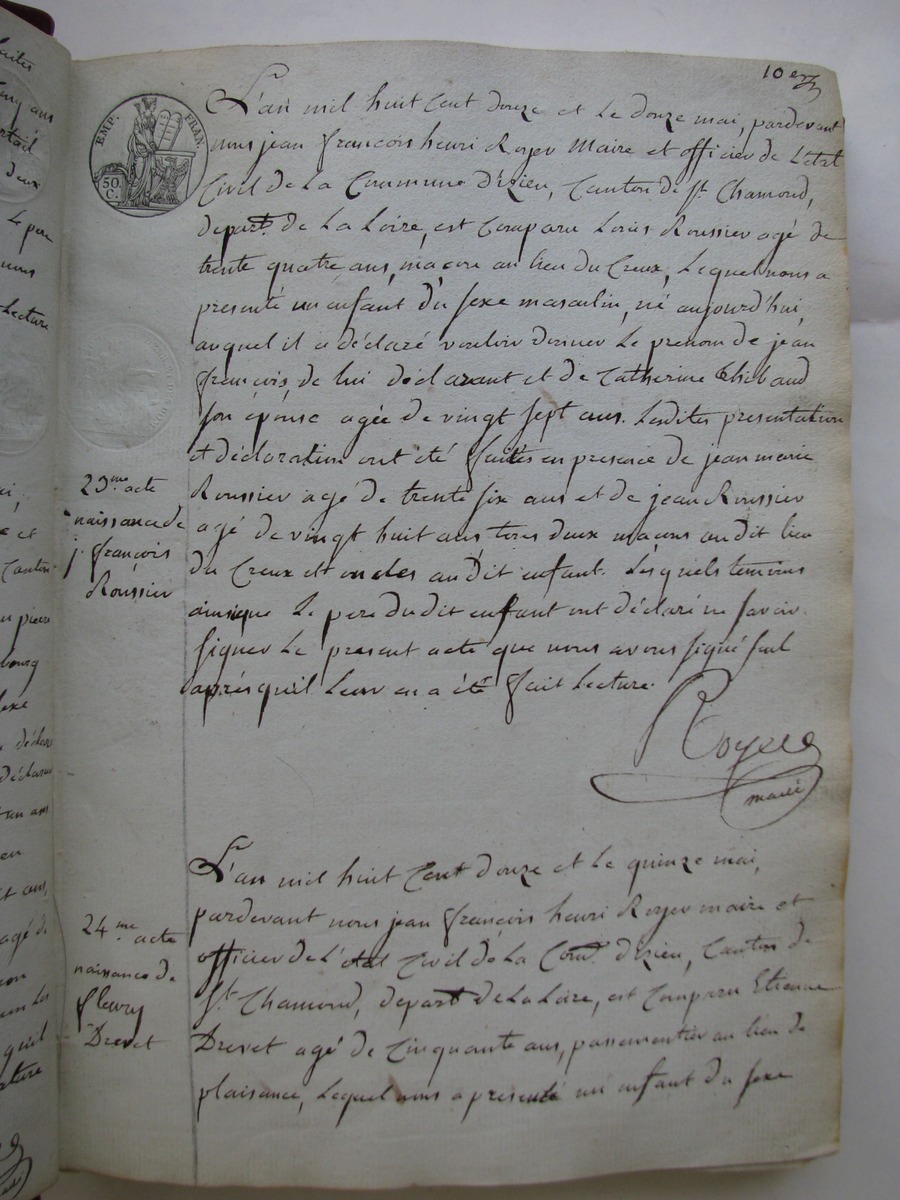 10e
EMP. FRAN.
50.
C.
L'an mil huit Cent douze et le douze mai, pardevant
nous jean françois henri Royer Maire et officier de L'état
Civil de La Commune d'izieu, Canton de St. Chamond,
départ. de La Loire, est Comparu Louis Roussier agé de
trente quatre ans, maçon au lieu du Creux, Lequel nous a
presenté un enfant du sexe masculin, né aujourd'hui,
auquel il a déclaré vouloir donner Le prenom de jean
françois, de lui déclarant et de Catherine Thibaud
son épouse agée de vingt sept ans. Lesdites presentation
et déclaration ont été faites en presence de jean marie
Roussier agé de trente six ans et de jean Roussier
agé de vingt huit ans tous deux maçons audit lieu
du Creux et oncles audit enfant. Lesquels temoins
ainsique Le pere dudit enfant ont déclaré ne savoir
signer Le present acte que nous avons signé seul
après qu'il Leur en a été fait Lecture.
Royer
maire
23me. acte
naissance de
j. françois
Roussier
L'an mil huit Cent douze et Le quinze mai,
pardevant nous jean françois henri Royer maire et
officier de L'état Civil de La Com. d'izieu, Canton de
St. Chamond, départ de La Loire, est Comparu Etienne
Drevet agé de Cinquante ans, passementier au lieu de
plaisance, Lequel nous a presenté un enfant du sexe
24me. acte
naissance de
fleury
Drevet